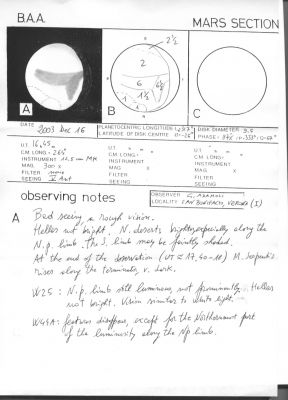 B.A.A.
MARS SECTION
2½
2
6
1 1½
6
A
B
C
DATE 2003 Dec 16
PLANETOCENTRIC LONGITUDE
LATITUDE OF DISK CENTRE
DISK DIAMETER 9.5
PHASE
UT 16,45
CM LONG 265°
INSTRUMENT 12,5 cm MK
MAG 300 x
FILTER none
SEEING V Ant
UT
CM LONG
INSTRUMENT
MAG X
FILTER
SEEING
UT
CM LONG
INSTRUMENT
MAG X
FILTER
SEEING
observing notes
OBSERVER G. ADAMOLI
LOCALITY SAN BONIFACIO, VERONA (I)
A Bad seeing & rough vision.
Hellas not bright. N. deserts bright, especially along the
N.p. limb. The S. limb may be faintly shaded.
At the end of the observation (UT ≈ 17,40-18) M. Serpentis
rises along the terminator, v. dark.
W25: N.p. limb still luminous, not prominently. Hellas
not bright. Vision similar to white light.
W44A: features disappear, except for the Northernmost part
of the luminosity along the Np limb.